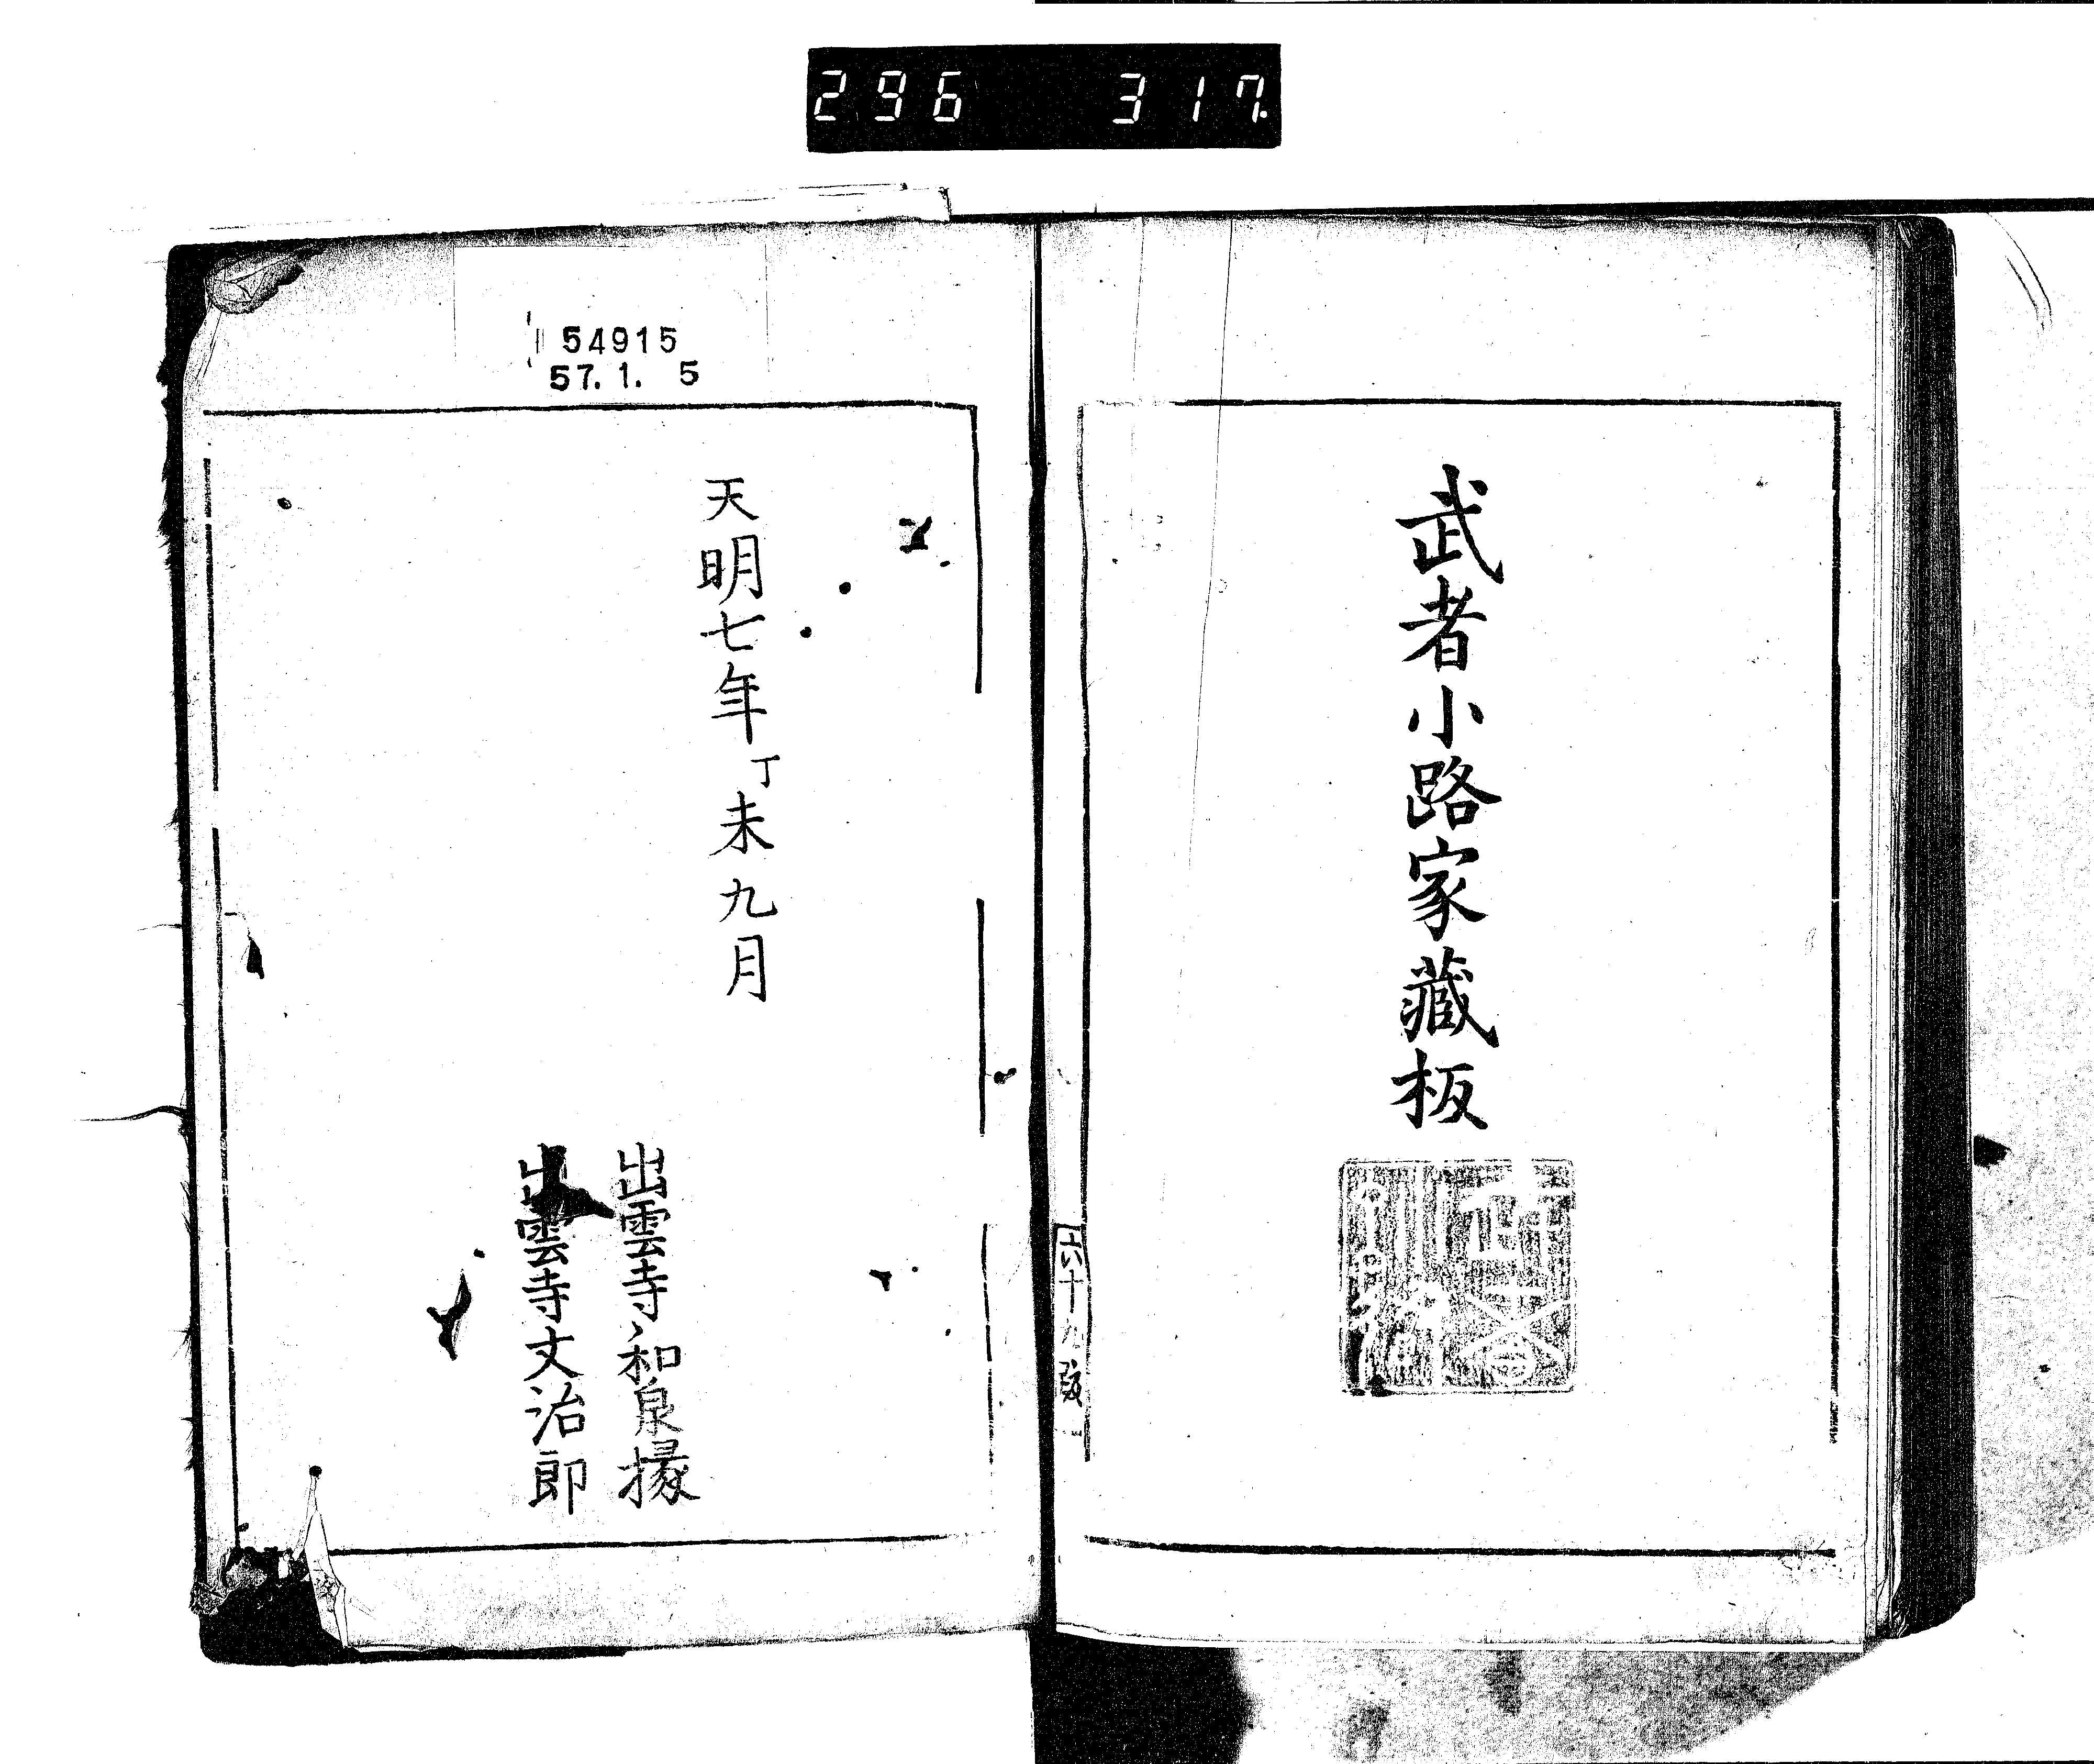 296 317
武者小路家藏板
六十九 跋
54915
57.1. 5
天明七年丁未九月
出雲寺和泉掾
出雲寺文治郎